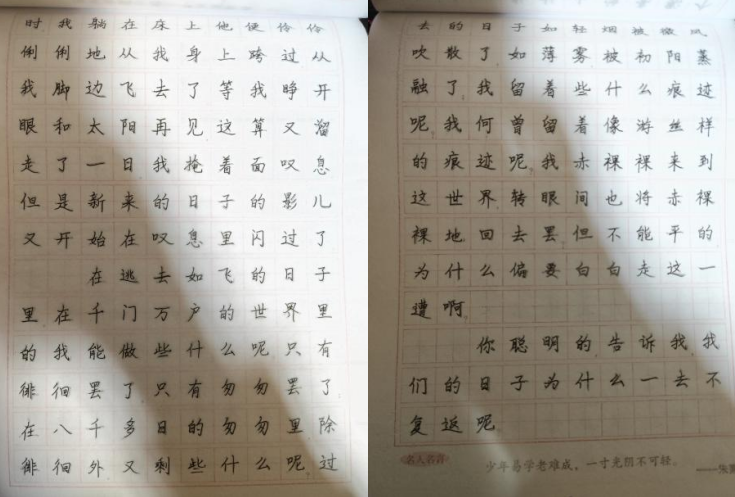 时我躺在床上他便伶伶
俐俐地从我身上跨过从
我脚边飞去了等我睁开
眼和太阳再见这算又溜
走了一日我掩着面叹息
但是新来的日子的影儿
又开始在叹息里闪过了
在逃去如飞的日子
里在千门万户的世界里
的我能做些什么呢只有
徘徊罢了只有匆匆罢了
在八千多日的匆匆里除
徘徊外又剩些什么呢过
去的日子如轻烟被微风
吹散了如薄雾被初阳蒸
融了我留着些什么痕迹
呢我何曾留着像游丝样
的痕迹呢我赤裸裸来到
这世界转眼间也将赤裸
裸地回去罢但不能平的
为什么偏要白白走这一
遭啊
你聪明的告诉我我
们的日子为什么一去不
复返呢
名人名言
少年易学老难成，一寸光阴不可轻。